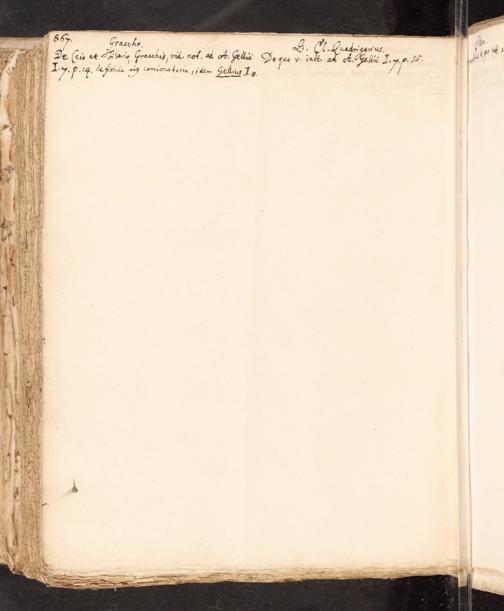 867.
Graccho.
De Caio et Tiberio Gracchis, vid. not. ad A. Gellii
I. 7. p. 14. de fistula ejus concionatoria, idem Gellius I. 11.
Q. Cl. Quadrigarius.
De quo v. int. ad A. Gellii I. 7. p. 55.